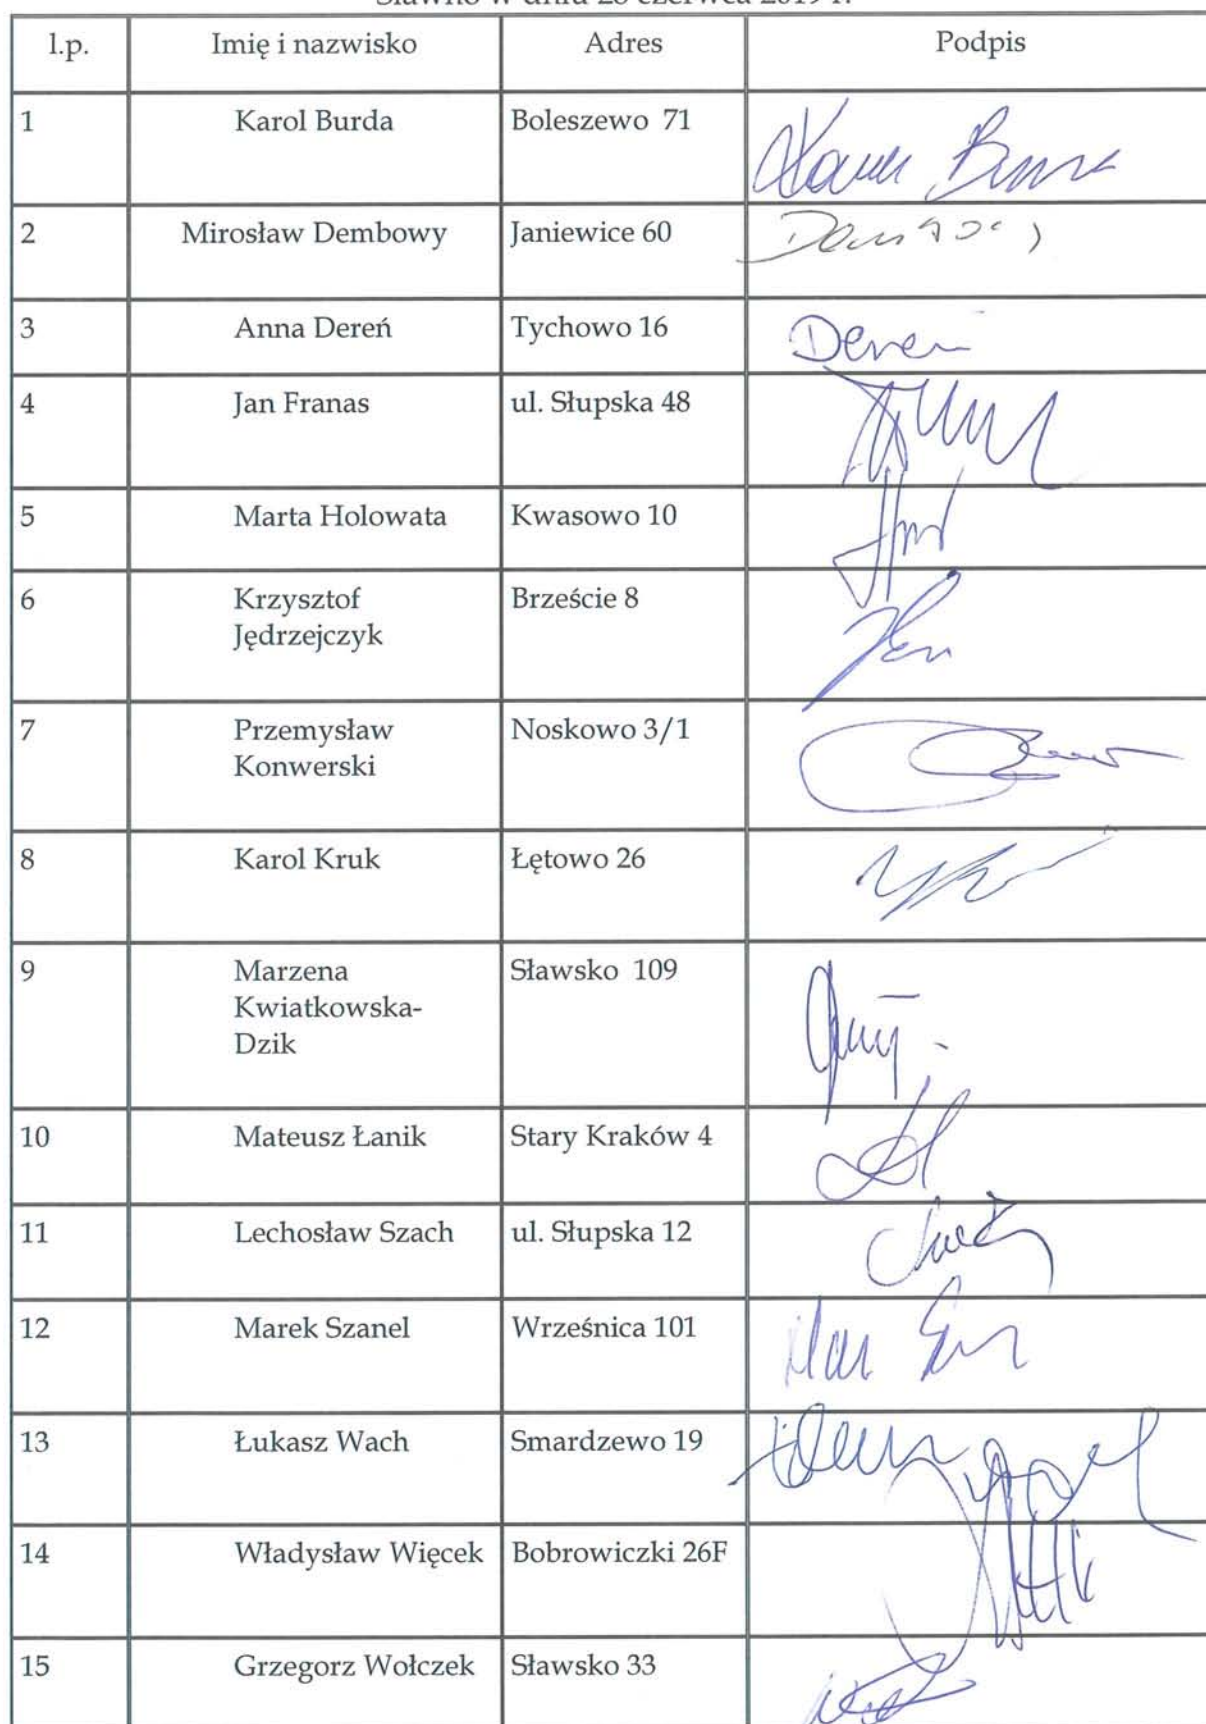 Sławno w dniu 28 czerwca 2019 r.
l.p. Imię i nazwisko Adres Podpis
1 Karol Burda Boleszewo 71
2 Mirosław Dembowy Janiewice 60
3 Anna Dereń Tychowo 16 Dereń
4 Jan Franas ul. Słupska 48
5 Marta Holowata Kwasowo 10
6 Krzysztof Brzeście 8
Jędrzejczyk
7 Przemysław Noskowo 3/1
Konwerski
8 Karol Kruk Łętowo 26
9 Marzena Sławsko 109
Kwiatkowska-
Dzik
10 Mateusz Łanik Stary Kraków 4
11 Lechosław Szach ul. Słupska 12
12 Marek Szanel Wrześnica 101
13 Łukasz Wach Smardzewo 19
14 Władysław Więcek Bobrowiczki 26F
15 Grzegorz Wołczek Sławsko 33